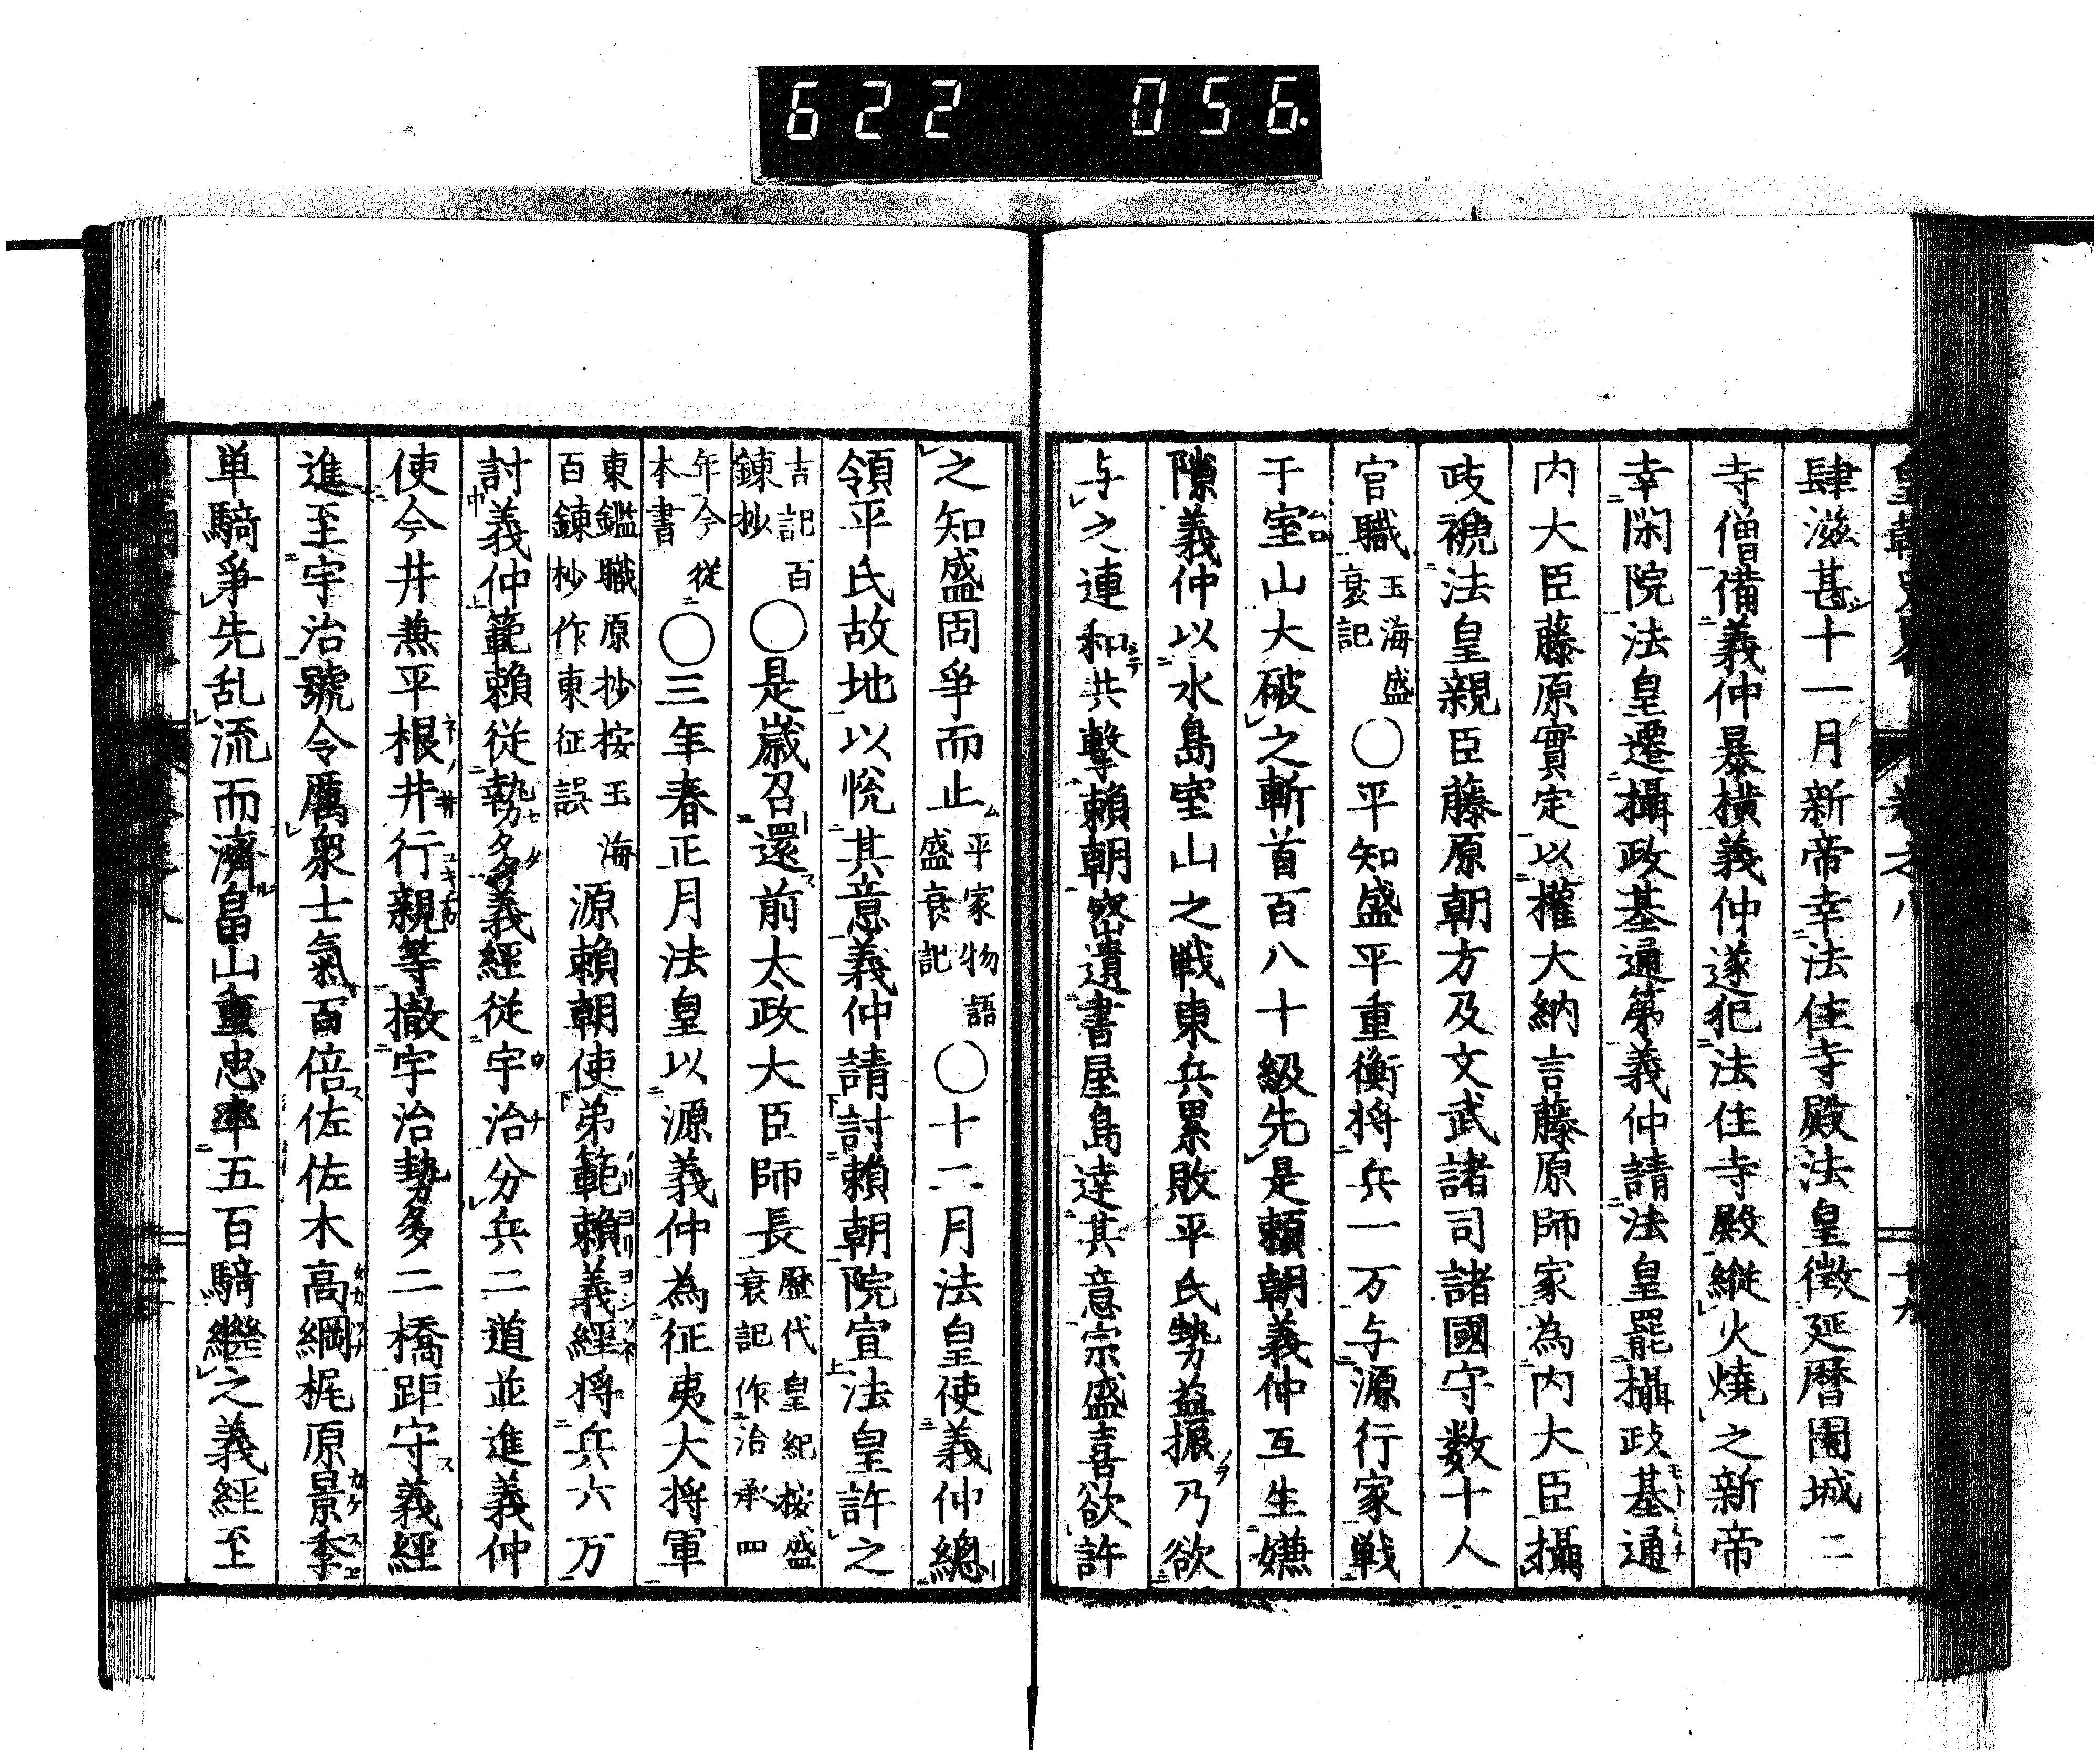 622 056.
肆滋甚十一月新帝幸法住寺殿法皇徴延暦園城二
寺僧備義仲暴横義仲遂犯法住寺殿縱火燒之新帝
幸閑院法皇遷攝政基通第義仲請法皇罷攝政基通
内大臣藤原實定以權大納言藤原師家為内大臣攝
政褫法皇親臣藤原朝方及文武諸司諸國守数十人
官職玉海盛衰記〇平知盛平重衡将兵一万与源行家戦
于室山大破之斬首百八十級先是頼朝義仲互生嫌
隙義仲以水島室山之戦東兵累敗平氏勢益振乃欲
与之連和共擊頼朝密遺書屋島達其意宗盛喜欲許
之知盛固爭而止平家物語盛衰記〇十二月法皇使義仲總
領平氏故地以悦其意義仲請討頼朝院宣法皇許之
吉記百錬抄〇是歳召還前太政大臣師長歴代皇紀按盛衰記作治承四
年今從本書〇三年春正月法皇以源義仲為征夷大将軍
東鑑職原抄按玉海百錬抄作東征誤源頼朝使弟範頼義經将兵六万
討義仲範頼從勢多義經從宇治分兵二道並進義仲
使今井兼平根井行親等撤宇治勢多二橋距守義經
進至宇治號令厲衆士氣百倍佐佐木高綱梶原景季
単騎爭先乱流而濟畠山重忠率五百騎繼之義經至